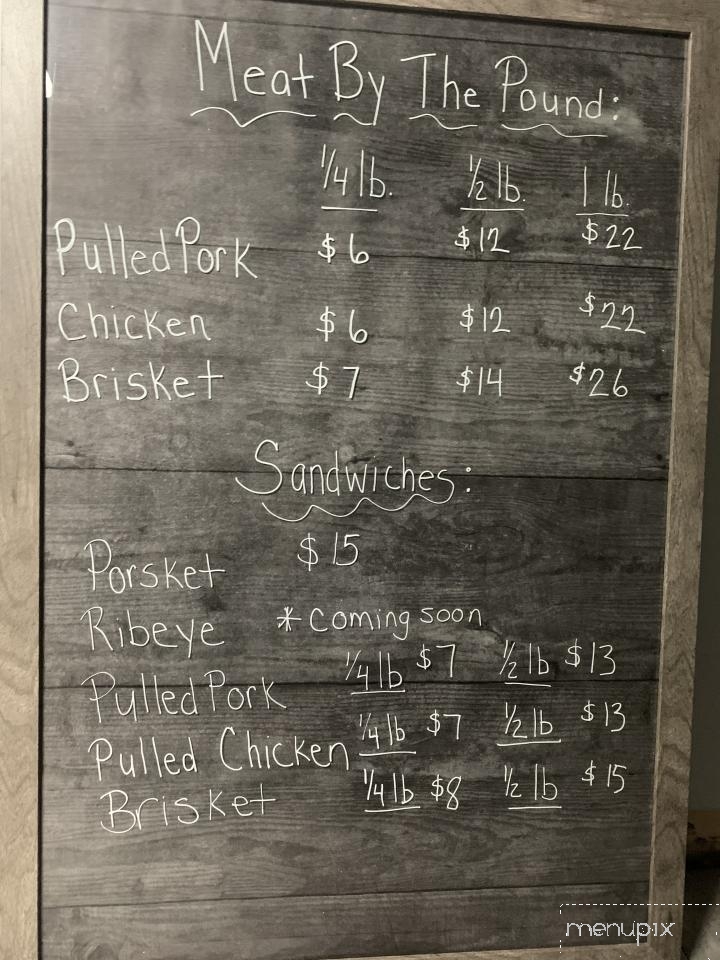 Meat By The Pound:
1/4 lb. 1/2 lb. 1 lb.
Pulled Pork $6 $12 $22
Chicken $6 $12 $22
Brisket $7 $14 $26
Sandwiches:
Porsket $15
Ribeye *Coming soon
Pulled Pork 1/4 lb $7 1/2 lb $13
Pulled Chicken 1/4 lb $7 1/2 lb $13
Brisket 1/4 lb $8 1/2 lb $15
menupix